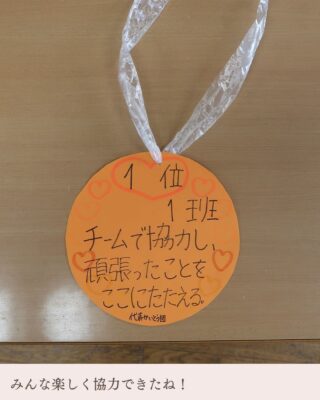 1 位
1 班
チームで協力し、
頑張ったことを
ここにたたえる。
代表せいとう団
みんな楽しく協力できたね！